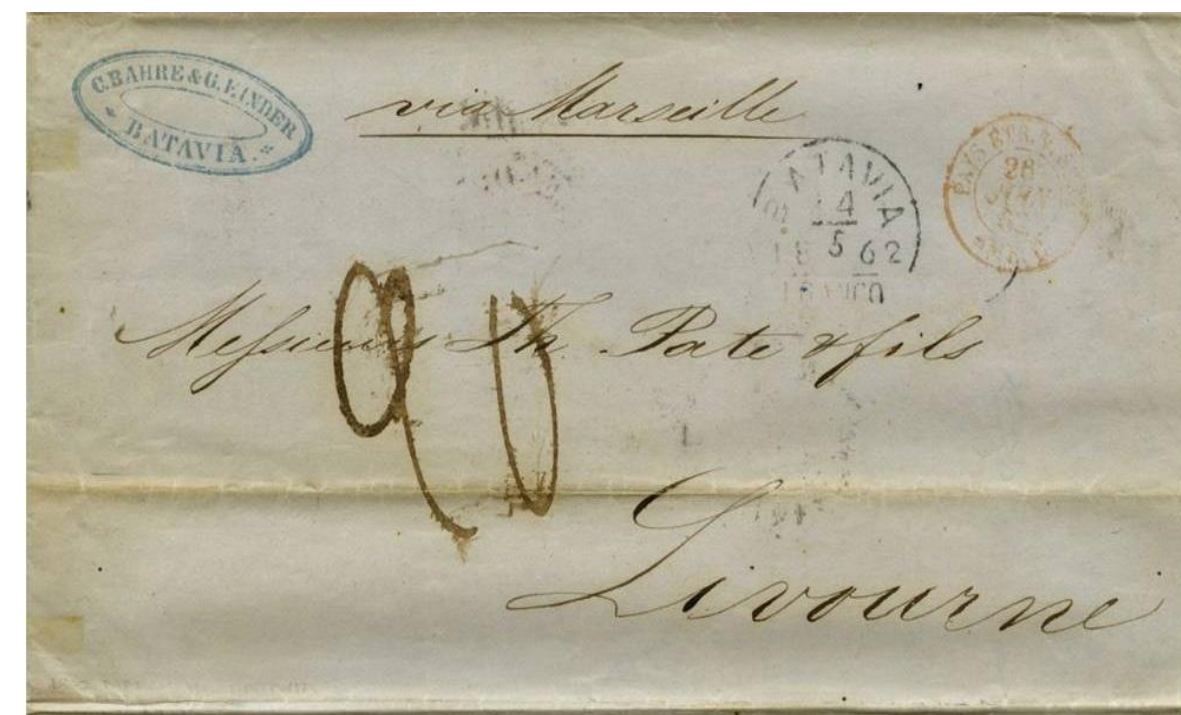 C. BAHRE & G. KINDER
BATAVIA.
via Marseille
BATAVIA
14
5 62
FRANCO
PAYS ETR.
28
Messieurs Th. Pate & fils
90
Livourne